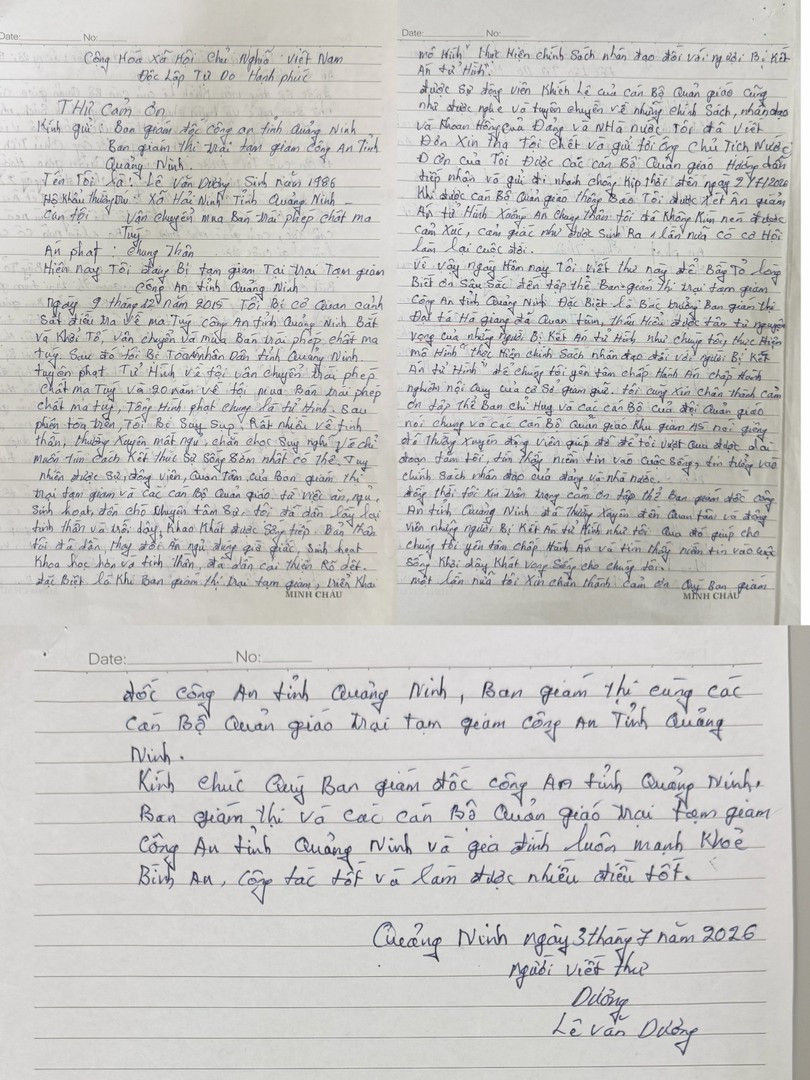 Date: No:
Cộng Hòa Xã Hội Chủ Nghĩa Việt Nam
Độc Lập Tự Do Hạnh phúc
THƯ CẢM ƠN
Kính gửi: Ban giám đốc công an tỉnh Quảng Ninh
Ban giám thị Trại tạm giam Công An Tỉnh
Quảng Ninh.
Tên Tôi là: Lê Văn Dương Sinh năm 1986
Hộ khẩu Thường Trú: Xã Hải Ninh Tỉnh Quảng Ninh
Can tội Vận chuyển mua Bán Trái phép chất ma
Túy
Án phạt: chung Thân
Hiện nay Tôi đang Bị tạm giam Tại Trại Tạm giam
Công An tỉnh Quảng Ninh
Ngày 9 tháng 12 năm 2015 Tôi Bị cơ Quan cảnh
Sát điều tra về ma Túy công An tỉnh Quảng Ninh Bắt
và Khởi Tố, vận chuyển và mua Bán Trái phép chất ma
túy. Sau đó tôi Bị Toà Nhân Dân tỉnh Quảng Ninh
tuyên phạt Tử Hình về tội vận chuyển Trái phép
chất ma Túy và 20 năm về tội mua Bán Trái phép
chất ma túy, Tổng Hình phạt chung là tử Hình. Sau
phiên tòa Trên, Tôi Bị Suy Sụp Rất nhiều về tinh
thần, thường Xuyên mất ngủ, chán chọc Suy nghĩ về chỉ
muốn Tìm cách Kết thúc Sự Sống Sớm nhất có Thể. Tuy
nhiên được Sự động viên, Quan Tâm của Ban giám thị
Trại tạm giam và các cán Bộ Quản giáo từ việc ăn, ngủ,
Sinh hoạt, đến chỗ Khuyên tâm Sự, tôi đã dần lấy lại
tinh thần và trỗi dậy, Khao Khát được Sống tiếp. Bản thân
tôi đã dần, thay đổi Ăn ngủ đúng giờ giấc, Sinh hoạt
Khoa học hơn và tinh Thần, đã dần cải thiện Rõ dết.
đặc Biệt là Khi Ban giám thị Trại tạm giam, Triển Khai
MINH CHÂU
Date: No:
mô Hình" thực Hiện chính Sách nhân đạo đối với người Bị Kết
Án tử Hình".
được Sự động viên Khích Lệ của cán Bộ Quản giáo cũng
như được nghe và tuyên chuyền về những chính Sách, nhân đạo
và Khoan Hồng của Đảng và Nhà nước Tôi đã Viết
Đơn Xin Tha Tội Chết và gửi tới Ông Chủ Tịch Nước
Đơn của Tôi Được các cán Bộ Quản giáo Hướng dẫn
tiếp nhận và gửi đi nhanh chóng Kịp thời đến ngày 2/7/2026
Khi được cán Bộ Quản giáo thông Báo Tôi được Xét Ân giảm
Án tử Hình Xuống Án chung Thân tôi đã Không Kìm nén được
cảm Xúc, cảm giác như được Sinh Ra 1 lần nữa có cơ Hội
làm lại cuộc đời.
Vì vậy ngày Hôm nay Tôi viết thư này để Bầy Tỏ lòng
Biết ơn Sâu Sắc đến tập thể Ban giám thị Trại tạm giam
Công An tỉnh Quảng Ninh Đặc Biệt là Bác trưởng Ban giám thị
Đại tá Hà giang đã Quan tâm, thấu Hiểu được tâm tư nguyện
vọng của những người Bị Kết Án tử Hình như chúng tôi, thực Hiện
mô Hình "thực Hiện chính Sách nhân đạo đối với người Bị Kết
Án tử Hình" để chúng tôi yên tâm chấp Hành Án chấp Hành
nghiêm nội Quy của cơ Sở giam giữ. tôi cũng Xin chân thành cảm
ơn tập thể Ban chỉ Huy và các cán Bộ của đội Quản giáo
nói chung và các cán Bộ Quản giáo Khu giam AS nói giêng
đã Thường Xuyên động viên giúp đỡ để tôi vượt Qua được giai
đoạn tăm tối, tìm thấy niềm tin vào Cuộc Sống, tin tưởng vào
chính Sách nhân đạo của đảng và nhà nước.
đồng thời tôi Xin Trân trọng cảm ơn tập thể Ban giám đốc công
An tỉnh Quảng Ninh đã Thường Xuyên đến Quan tâm và động
Viên những người Bị Kết Án tử Hình như tôi Qua đó giúp cho
chúng tôi yên tâm chấp Hành Án và tìm thấy niềm tin vào cuộc
Sống Khơi dậy Khát Vọng Sống cho chúng tôi.
một lần nữa tôi Xin chân thành cảm ơn Quý Ban giám
MINH CHÂU
Date: No:
đốc công An tỉnh Quảng Ninh, Ban giám thị cùng các
cán Bộ Quản giáo trại tạm giam công An Tỉnh Quảng
Ninh.
Kính chúc Quý Ban giám đốc công An tỉnh Quảng Ninh.
Ban giám thị và các cán Bộ Quản giáo trại tạm giam
Công An tỉnh Quảng Ninh và gia đình luôn mạnh Khoẻ
Bình An, công tác tốt và làm được nhiều điều tốt.
Quảng Ninh ngày 3 tháng 7 năm 2026
người viết thư
Dương
Lê Văn Dương